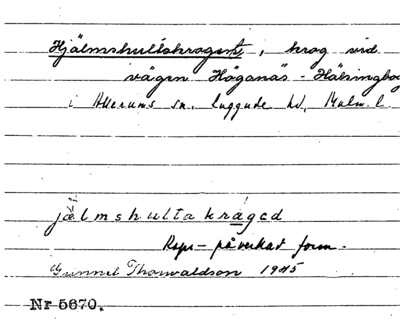 Hjälmshultskrogen, krog vid
vägen Höganäs - Hälsingbo
i Allerums sn, Luggude hd, Malm. l.
jälmshultakrågəd
Rspr- påverkad form.
Gunnel Thorwaldson 1945
Nr 5670.